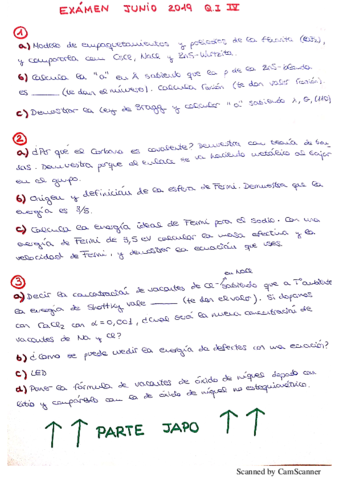 EXÁMEN JUNIO 2019 QI IV
1
a) Modelo de empaquetamientos y posiciones de la
y compararla con CsCl, NaCl y ZnS-Wurzita.
b) Calcula la "a" en Å sabiendo que la ρ de la ZnS-Blenda
es _____ (te dan el número). Calcula (te dan valor).
c) Demostrar la ley de Bragg y calcular "a" sabiendo λ, θ, (110)
2
a) ¿Por qué el Carbono es covalente? Demuestra con teoría de ban-
das. Demuestra porque el enlace se va haciendo metálico al bajar
en el grupo.
b) Origen y definición de la esfera de Fermi. Demuestra que la
energía es 3/5.
c) Calcula la energía ideal de Fermi para el sodio. Con una
energía de Fermi de 3,5 eV calcular la masa efectiva y la
velocidad de Fermi. y demostrar la ecuación que uses.
3
en NaCl
a) Decir la concentración de vacantes de Cl⁻ sabiendo que a Tª ambiente
la energía de Shottky vale _____ (te dan el valor). Si dopamos
con CaCl2 con α=0,001, ¿Cuál será la nueva concentración de
vacantes de Na y Cl?
b) ¿Como se puede medir la energía de defectos con una ecuación?
c) LED
d) Poner la fórmula de vacantes de óxido de níquel dopado con
litio y compáralo con la de óxido de níquel no estequiométrico.
↑ ↑ PARTE JAPO ↑ ↑
Scanned by CamScanner